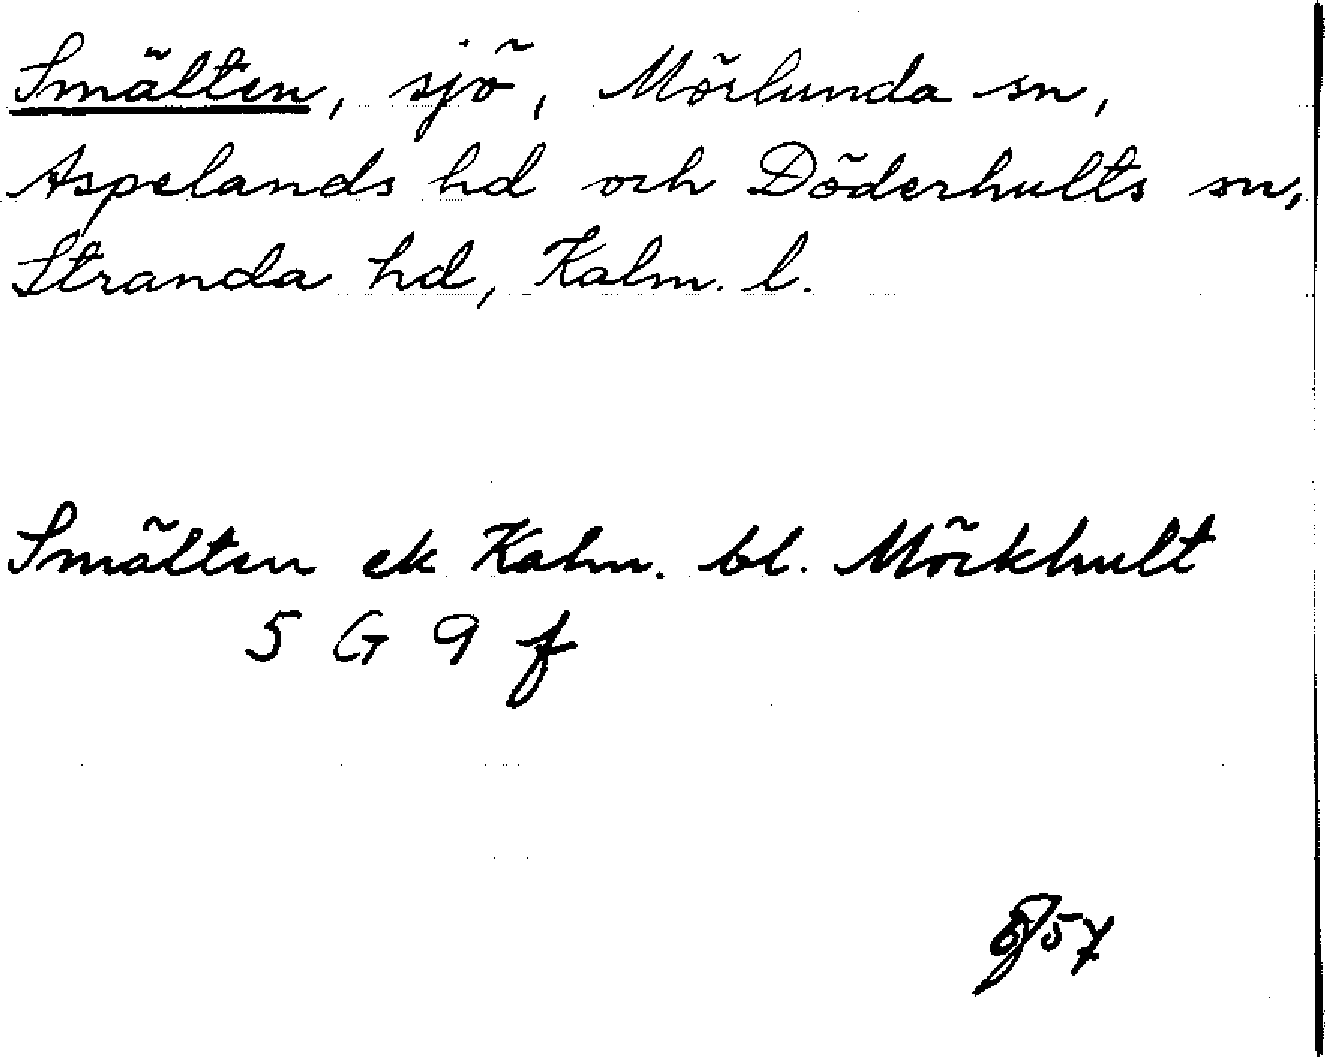 Smälten, sjö, Mörlunda sn,
Aspelands hd och Döderhults sn,
Stranda hd, Kalm. l.
Smälten ek Kalm. bl. Mörkhult
5 G 9 f
57